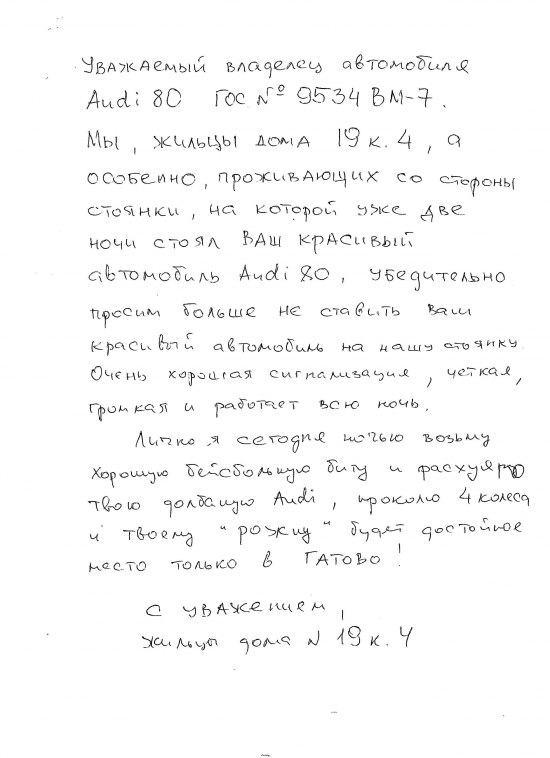 Уважаемый владелец автомобиля
Audi 80 ГОС № 9534 ВМ-7.
Мы, жильцы дома 19 к. 4, а
особенно, проживающих со стороны
стоянки, на которой уже две
ночи стоял ВАШ красивый
автомобиль Audi 80, убедительно
просим больше не ставить ваш
красивый автомобиль на нашу стоянку.
Очень хорошая сигнализация, четкая,
громкая и работает всю ночь.
Лично я сегодня ночью возьму
хорошую бейсбольную биту и расхуярю
твою долбаную Audi, проколю 4 колеса
и твоему "рожну" будет достойное
место только в ГАТОВО!
С уважением,
жильцы дома N 19 к. 4